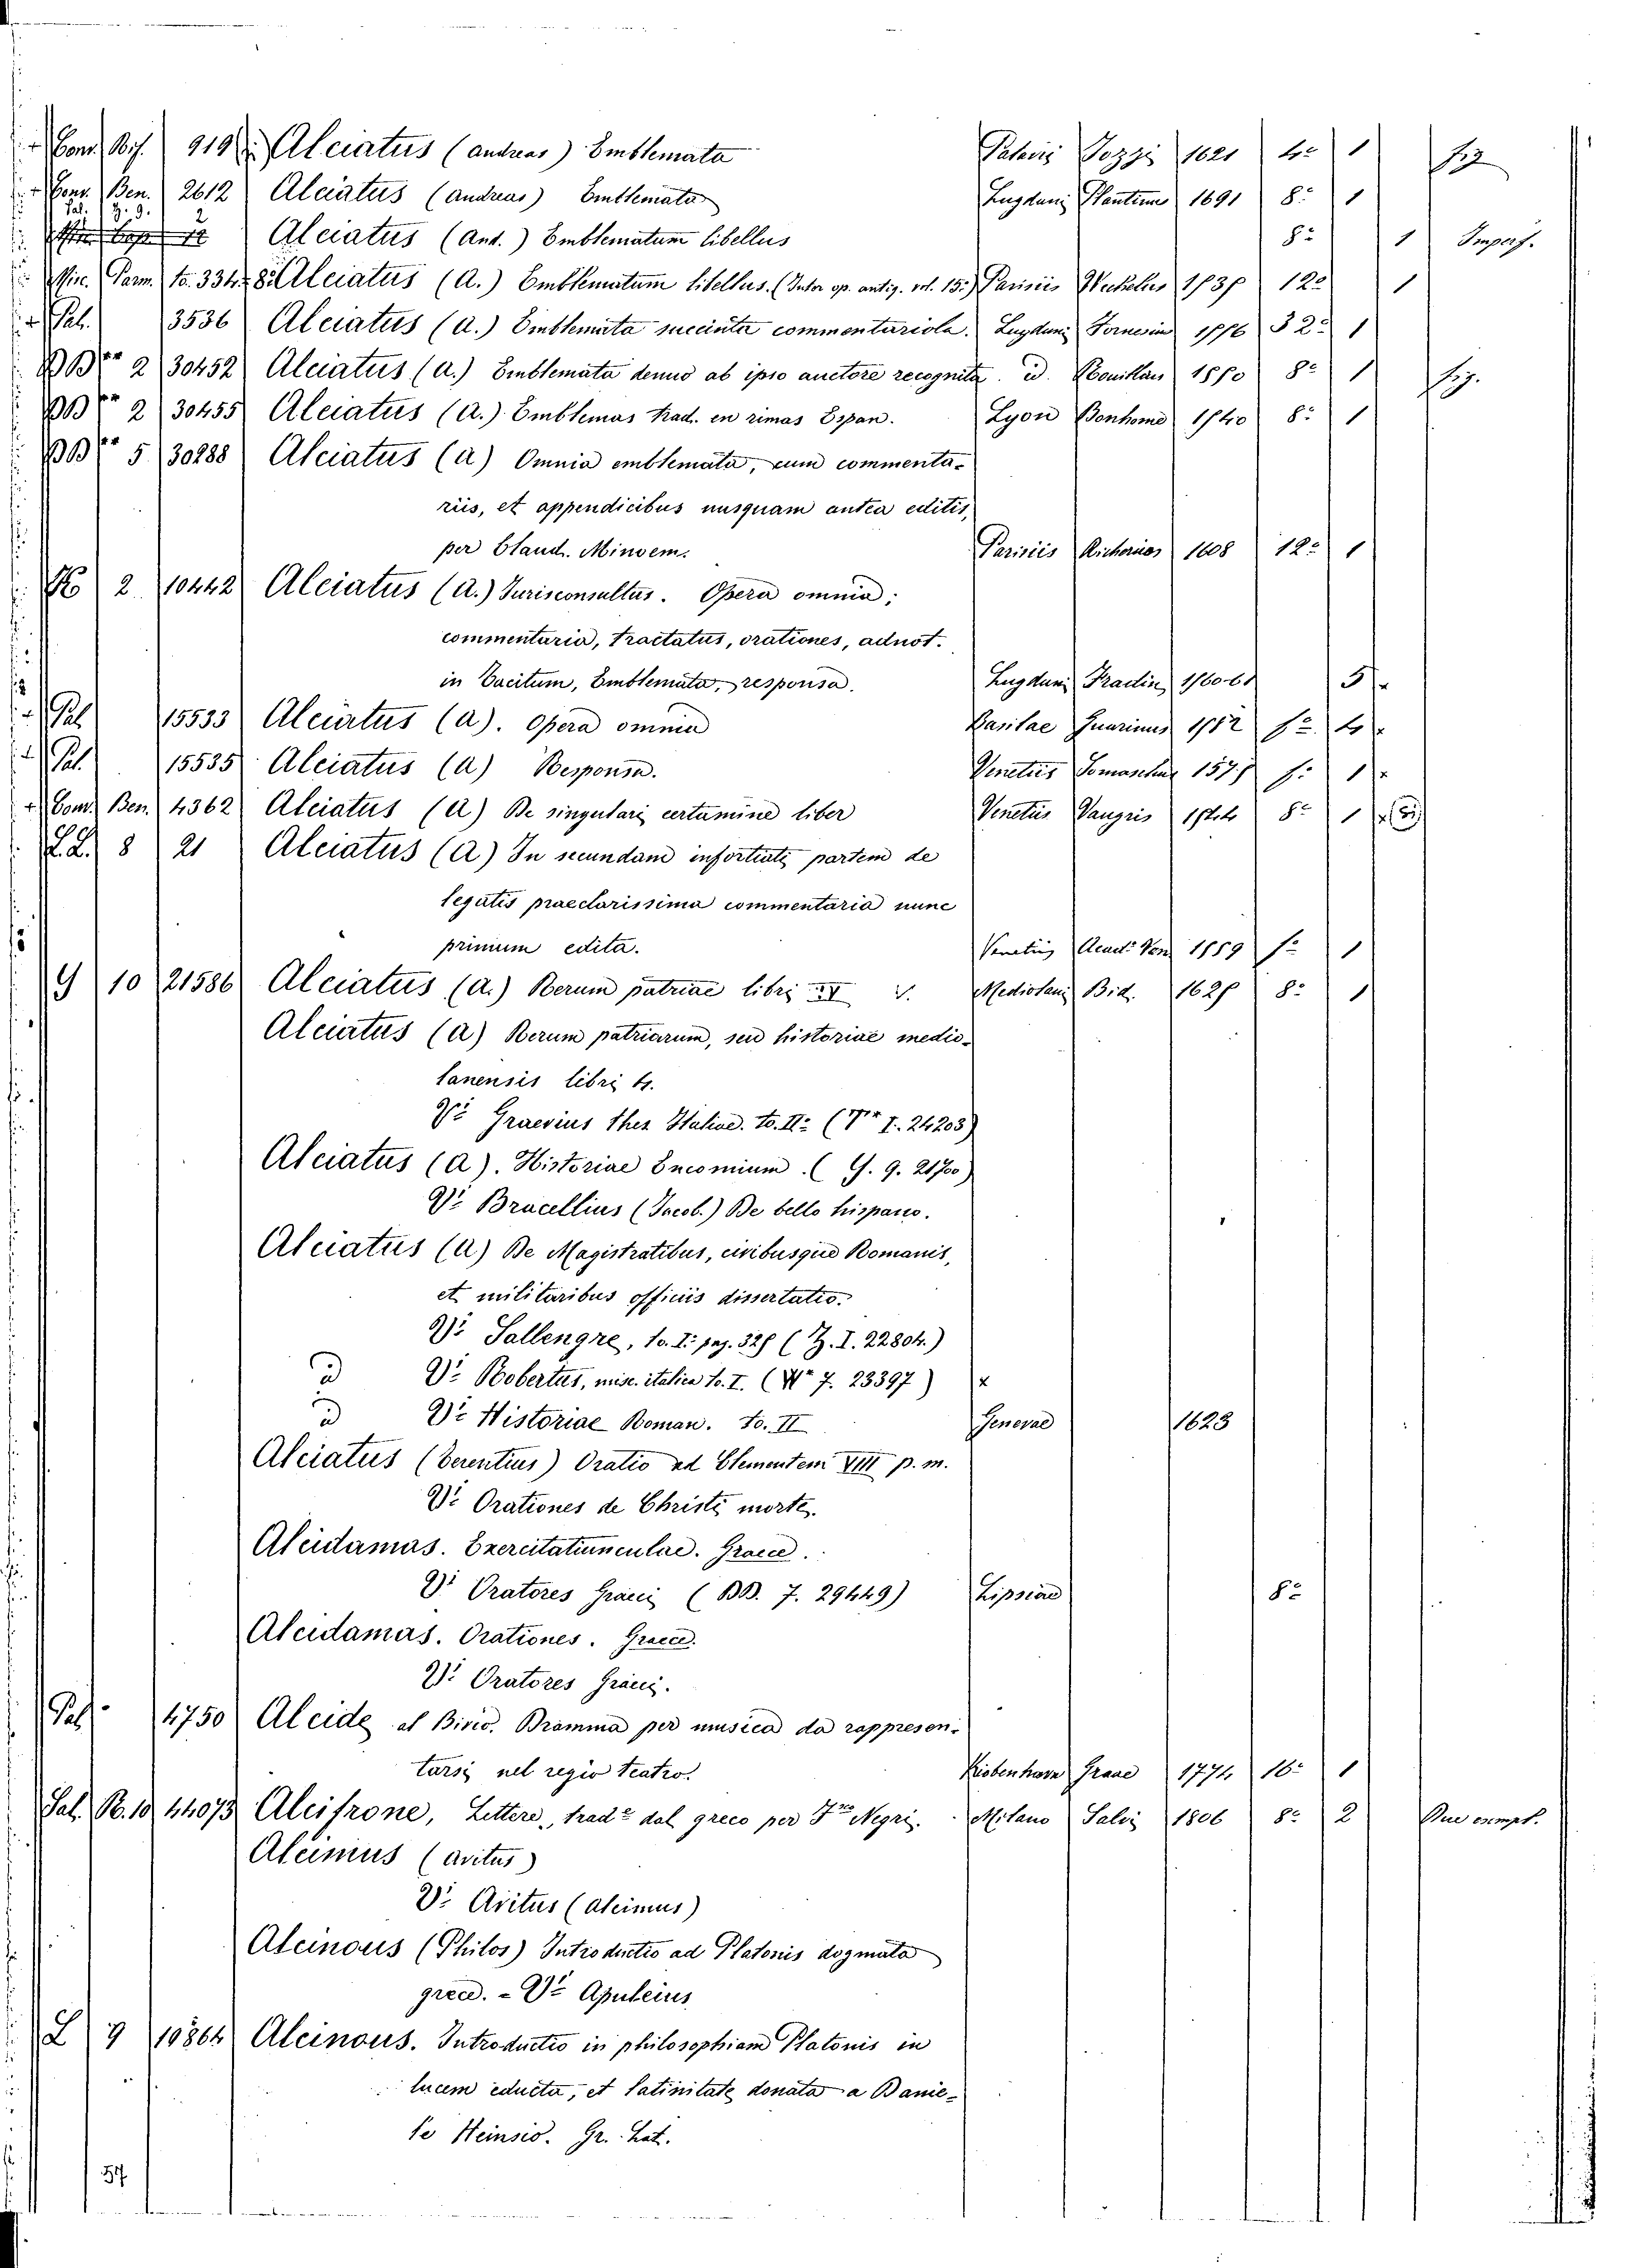 Conv. Bif. 919 Alciatus (Andreas) Emblemata Patavii Tozzi 1621 4º 1 fig
Conv. Ben. 2612 Alciatus (Andreas) Emblemata Lugduni Plantino 1691 8º 1
Pal. Z. 9. 2 12 Alciatus (And.) Emblematum libellus 8º 1 Imperf.
Misc. Parm. to. 334. 8º Alciatus (A.) Emblematum libellus. (Inter op. antiq. vol. 15.) Parisiis Wechelus 1535 12º 1
Pal. 3536 Alciatus (A.) Emblemata succinta commentariola. Lugduni Tornesius 1556 32º 1
BBrr 2 30452 Alciatus (A.) Emblemata denuo ab ipso auctore recognita. id. Rouillius 1550 8º 1 fig.
BBrr 2 30455 Alciatus (A.) Emblemas trad. en rimas Espan. Lyon Bonhome 1540 8º 1
BBrr 5 30288 Alciatus (A) Omnia emblemata, cum commenta-
riis, et appendicibus nusquam antea editis,
per Claud. Minoem. Parisiis Richerius 1608 12º 1
2 10442 Alciatus (A.) Jurisconsultus. Opera omnia;
commentaria, tractatus, orationes, adnot.
in Tacitum, Emblemata, responsa. Lugduni Fradin 1560-61 5
Pal. 15533 Alciatus (A). Opera omnia Basilae Guarinus 1582 fº 4
Pal. 15535 Alciatus (A) Responsa. Venetiis Somaschus 1575 fº 1
Conv. Ben. 4362 Alciatus (A) De singulari certamine liber Venetiis Vaugris 1544 8º 1
L.L. 8 21 Alciatus (A) In secundam infortiati partem de
legatis praeclarissima commentaria nunc
primum edita. Venetiis Acad. Ven. 1559 fº 1
G 10 21586 Alciatus (A.) Rerum patriae libri IV Mediolani Bid. 1625 8º 1
Alciatus (A) Rerum patriarum, seu historiae medio-
lanensis libri 4.
Vº Graevius thes. Italiae. to. IIº (Vrr I. 24203)
Alciatus (A). Historiae Encomium. (G. 9. 21700)
Vº Bracellius (Jacob.) De bello hispano.
Alciatus (A) De Magistratibus, civibusque Romanis,
et militaribus officiis dissertatio.
Vº Sallengre, to. Iº pag. 325 (Z. I. 22804.)
id Vº Robertus, misc. italica to. I. (Wrr 7. 23397)
id Vº Historiae Roman. to. II Genevae 1623
Alciatus (Terentius) Oratio ad Clementem VIII p. m.
Vº Orationes de Christi morte.
Alcidamas. Exercitatiunculae. Graece.
Vº Oratores Graeci (BB. 7. 29449) Lipsiae 8º
Alcidamas. Orationes. Graece.
Vº Oratores Graeci.
Pal. 4750 Alcide al Bivio. Dramma per musica da rappresen-
tarsi nel regio teatro. Kiobenhavn Graae 1774 16º 1
Sal. R. 10 44073 Alcifrone, Lettere, trade dal greco per Fr. Negri. Milano Salvi 1806 8º 2 Due esempl.
Alcimus (Avitus)
Vº Avitus (Alcimus)
Alcinous (Philos) Introductio ad Platonis dogmata
graece. = Vº Apuleius
L 9 10864 Alcinous. Introductio in philosophiam Platonis in
lucem educta, et latinitate donata a Danie-
le Heinsio. Gr. Lat.
57